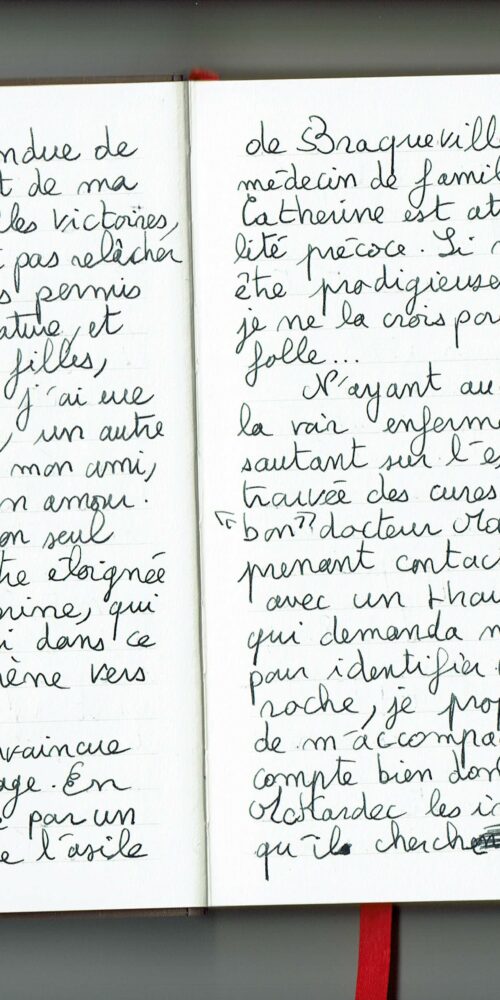 ndue de
t de ma
lles victoires,
t pas relâcher
s permis
ature, et
filles,
j'ai eue
, un autre
mon ami,
n amour.
on seul
tre éloignée
orine, qui
i dans ce
ène vers
vaincue
age. En
par un
e l'asile
de Braquevill
médecin de famil
Catherine est at
lité précoce. Si
être prodigieuse
je ne la crois pou
folle...
N'ayant au
la voir enferme
sautant sur l'e
trouvée des cures
"bon" docteur
prenant contac
avec un thau
qui demanda
pour identifier
roche, je prop
de m'accompa
compte bien don
les i
qu'ils cherche